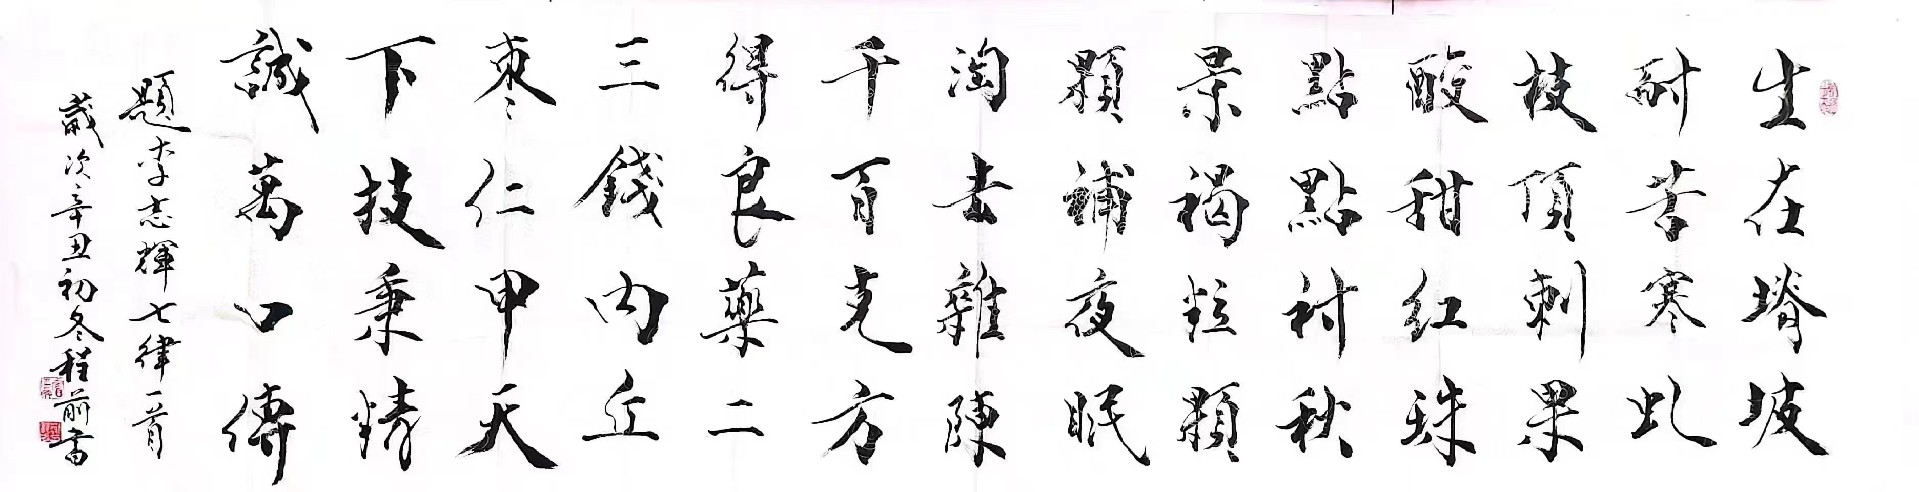 生在塉坡
耐苦寒虬
枝頂刺果
酸甜红珠
點點衬秋
景褐粒顆
顆補夜眠
淘去雜陳
千百克方
得良藥二
三錢内丘
棗仁甲天
下技秉精
誠萬口傳
題李志輝七律一首
歲次辛丑初冬程前書